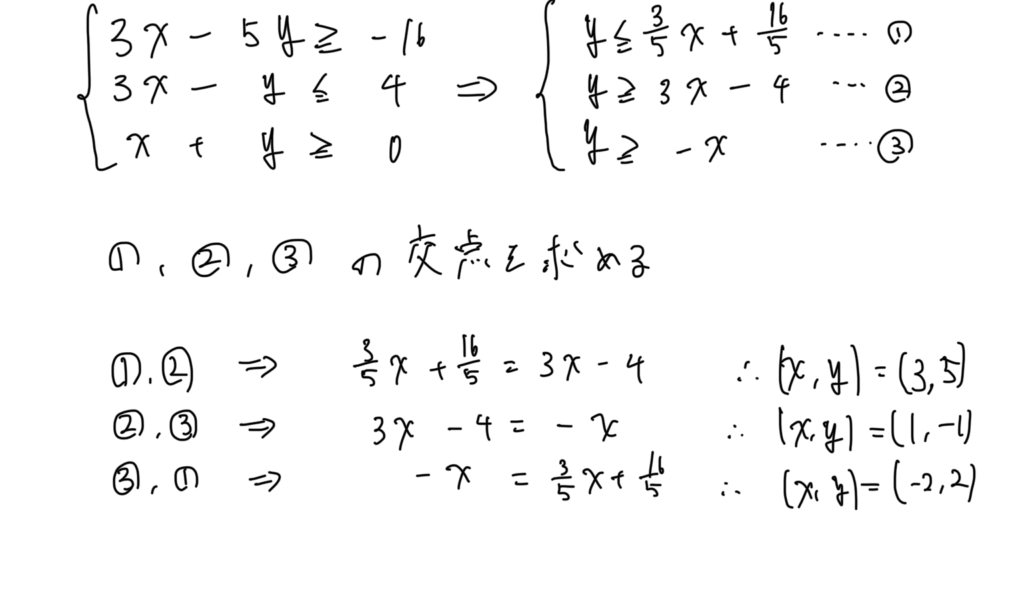 3x - 5y ≧ -16 ⇒ y ≦ 3/5 x + 16/5 ‥‥ ①
3x - y ≦ 4 y ≧ 3x - 4 ‥‥ ②
x + y ≧ 0 y ≧ -x ‥‥ ③
①, ②, ③ の 交点を求める
①, ② ⇒ 3/5 x + 16/5 = 3x - 4 ∴ (x, y) = (3, 5)
②, ③ ⇒ 3x - 4 = -x ∴ (x, y) = (1, -1)
③, ① ⇒ -x = 3/5 x + 16/5 ∴ (x, y) = (-2, 2)